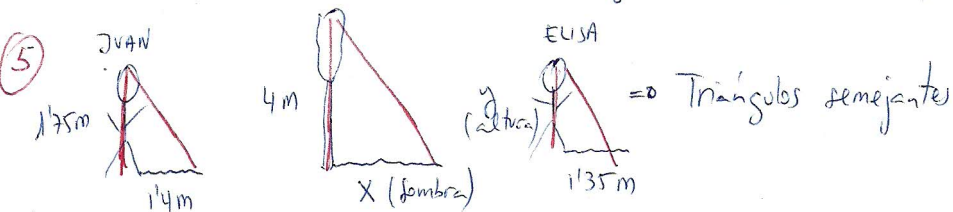 5
JUAN
1'75m
1'4m
4m
X (sombra)
ELISA
y
(altura)
1'35m
⇒ Triángulos semejantes